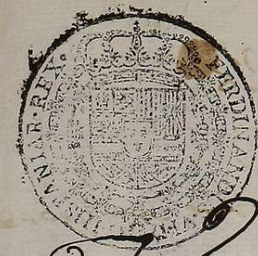 FERDINAND·VI·D·G·
HISPANIAR·REX·